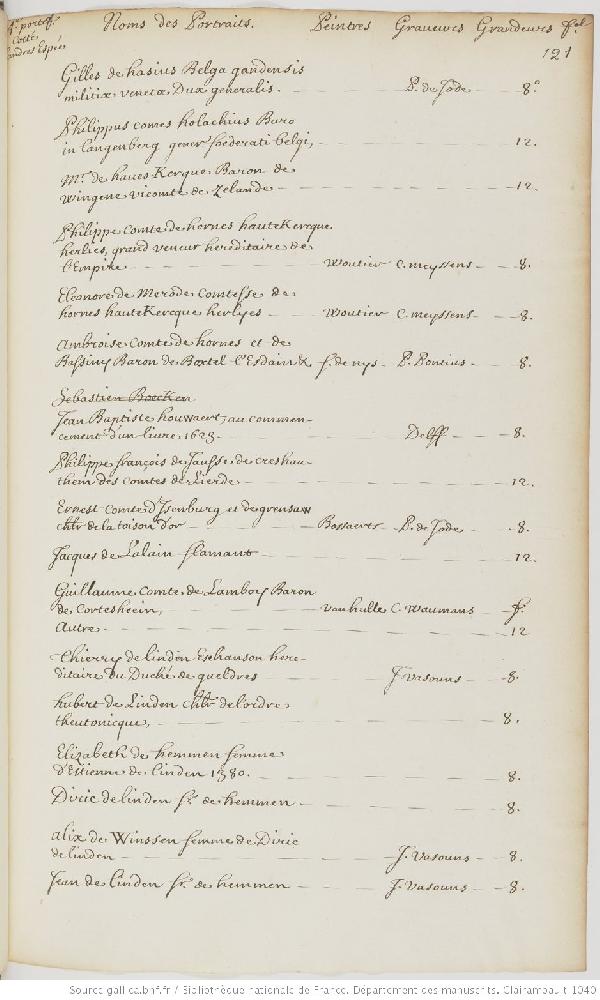 4e. portef.
Cotté
Noms des Portraits. Peintres Graveurs Grandeurs fol
121
Gilles de hasius Belga gandensis
militiæ venetæ Dux generalis. P. de Jode 8°
Philippus comes holachius Baro
in langenberg gener fœderati belgi, 12.
Mr. de haves Kerque Baron de
wingene vicomte de Zelande 12.
Philippe Comte de hornes hauteKercque
herlies, grand veneur hereditaire de
l'Empire Woutier C. meyssens 8.
Eleonore de Merode Comtesse de
hornes hauteKercque herlyes Woutier C. meyssens 8.
Ambroise Comte de hornes et de
Bassiny Baron de Boxtel l'Esdain & f. de nys P. Pontius 8.
Sebastien Boecken
Jean Baptiste houwaert, au commen-
cement d'un livre. 1623. Delff 8.
Philippe françois de Jausse de creshau-
them des comtes de Lierde 12.
Ernest Comte d'Isenburg et de grensaw
chlr de la toison d'or Bossaerts P. de Jode 8.
Jacques de Lalain flamant 12.
Guillaume Comte de Lamboy Baron
de Cortesheein, vanhulle C. Waumans f°.
Autre 12
Thierry de linden Eschanson here-
ditaire du Duché de gueldres J. Vasouns 8.
hubert de Linden chlr de l'ordre
theutonicque, 8.
Elizabeth de hemmen femme
d'Estienne de linden 1380. 8.
Diric de linden sr. de hemmen 8.
alix de Winssen femme de Diric
de linden J. Vasouns 8.
Jean de linden sr. de hemmen J. Vasouns 8.
Source gallica.bnf.fr / Bibliothèque nationale de France. Département des manuscrits. Clairambault 1040